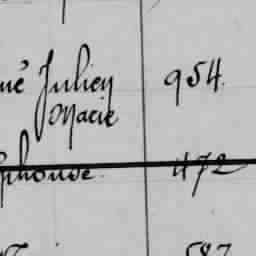 né Julien 954.
Marie
phonse. 472
587